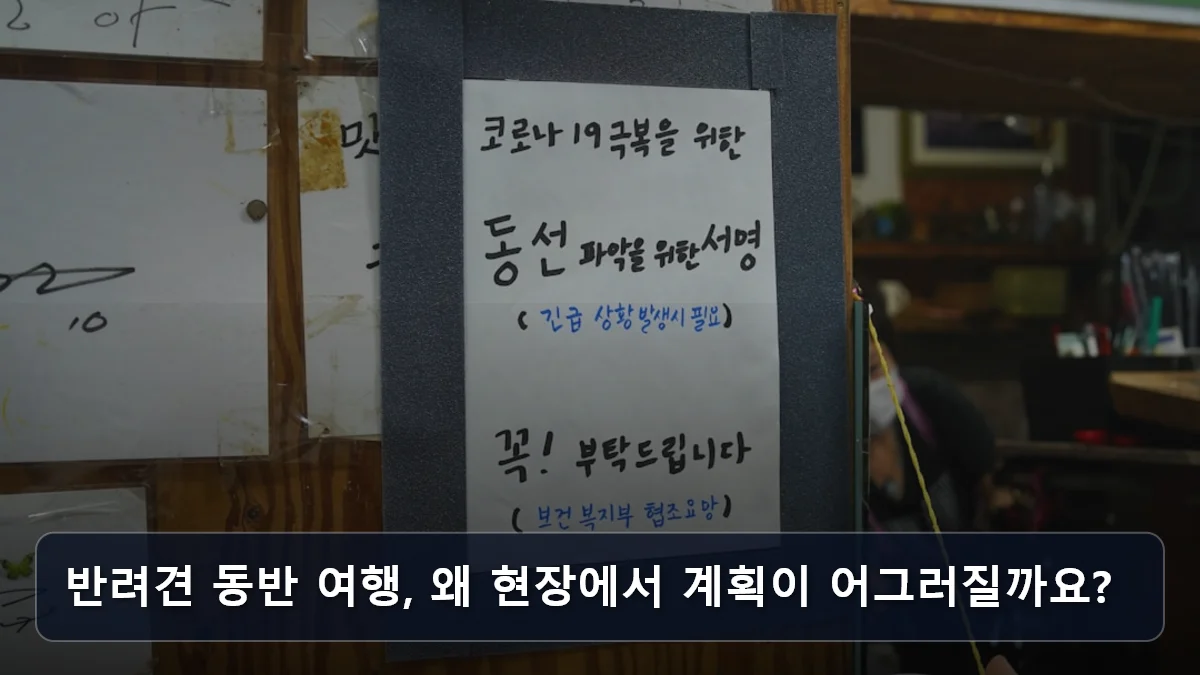 코로나 19 극복을 위한
동선 파악을 위한 서명
( 긴급 상황 발생시 필요)
꼭! 부탁드립니다
( 보건복지부 협조요망)
맛
10
반려견 동반 여행, 왜 현장에서 계획이 어그러질까요?